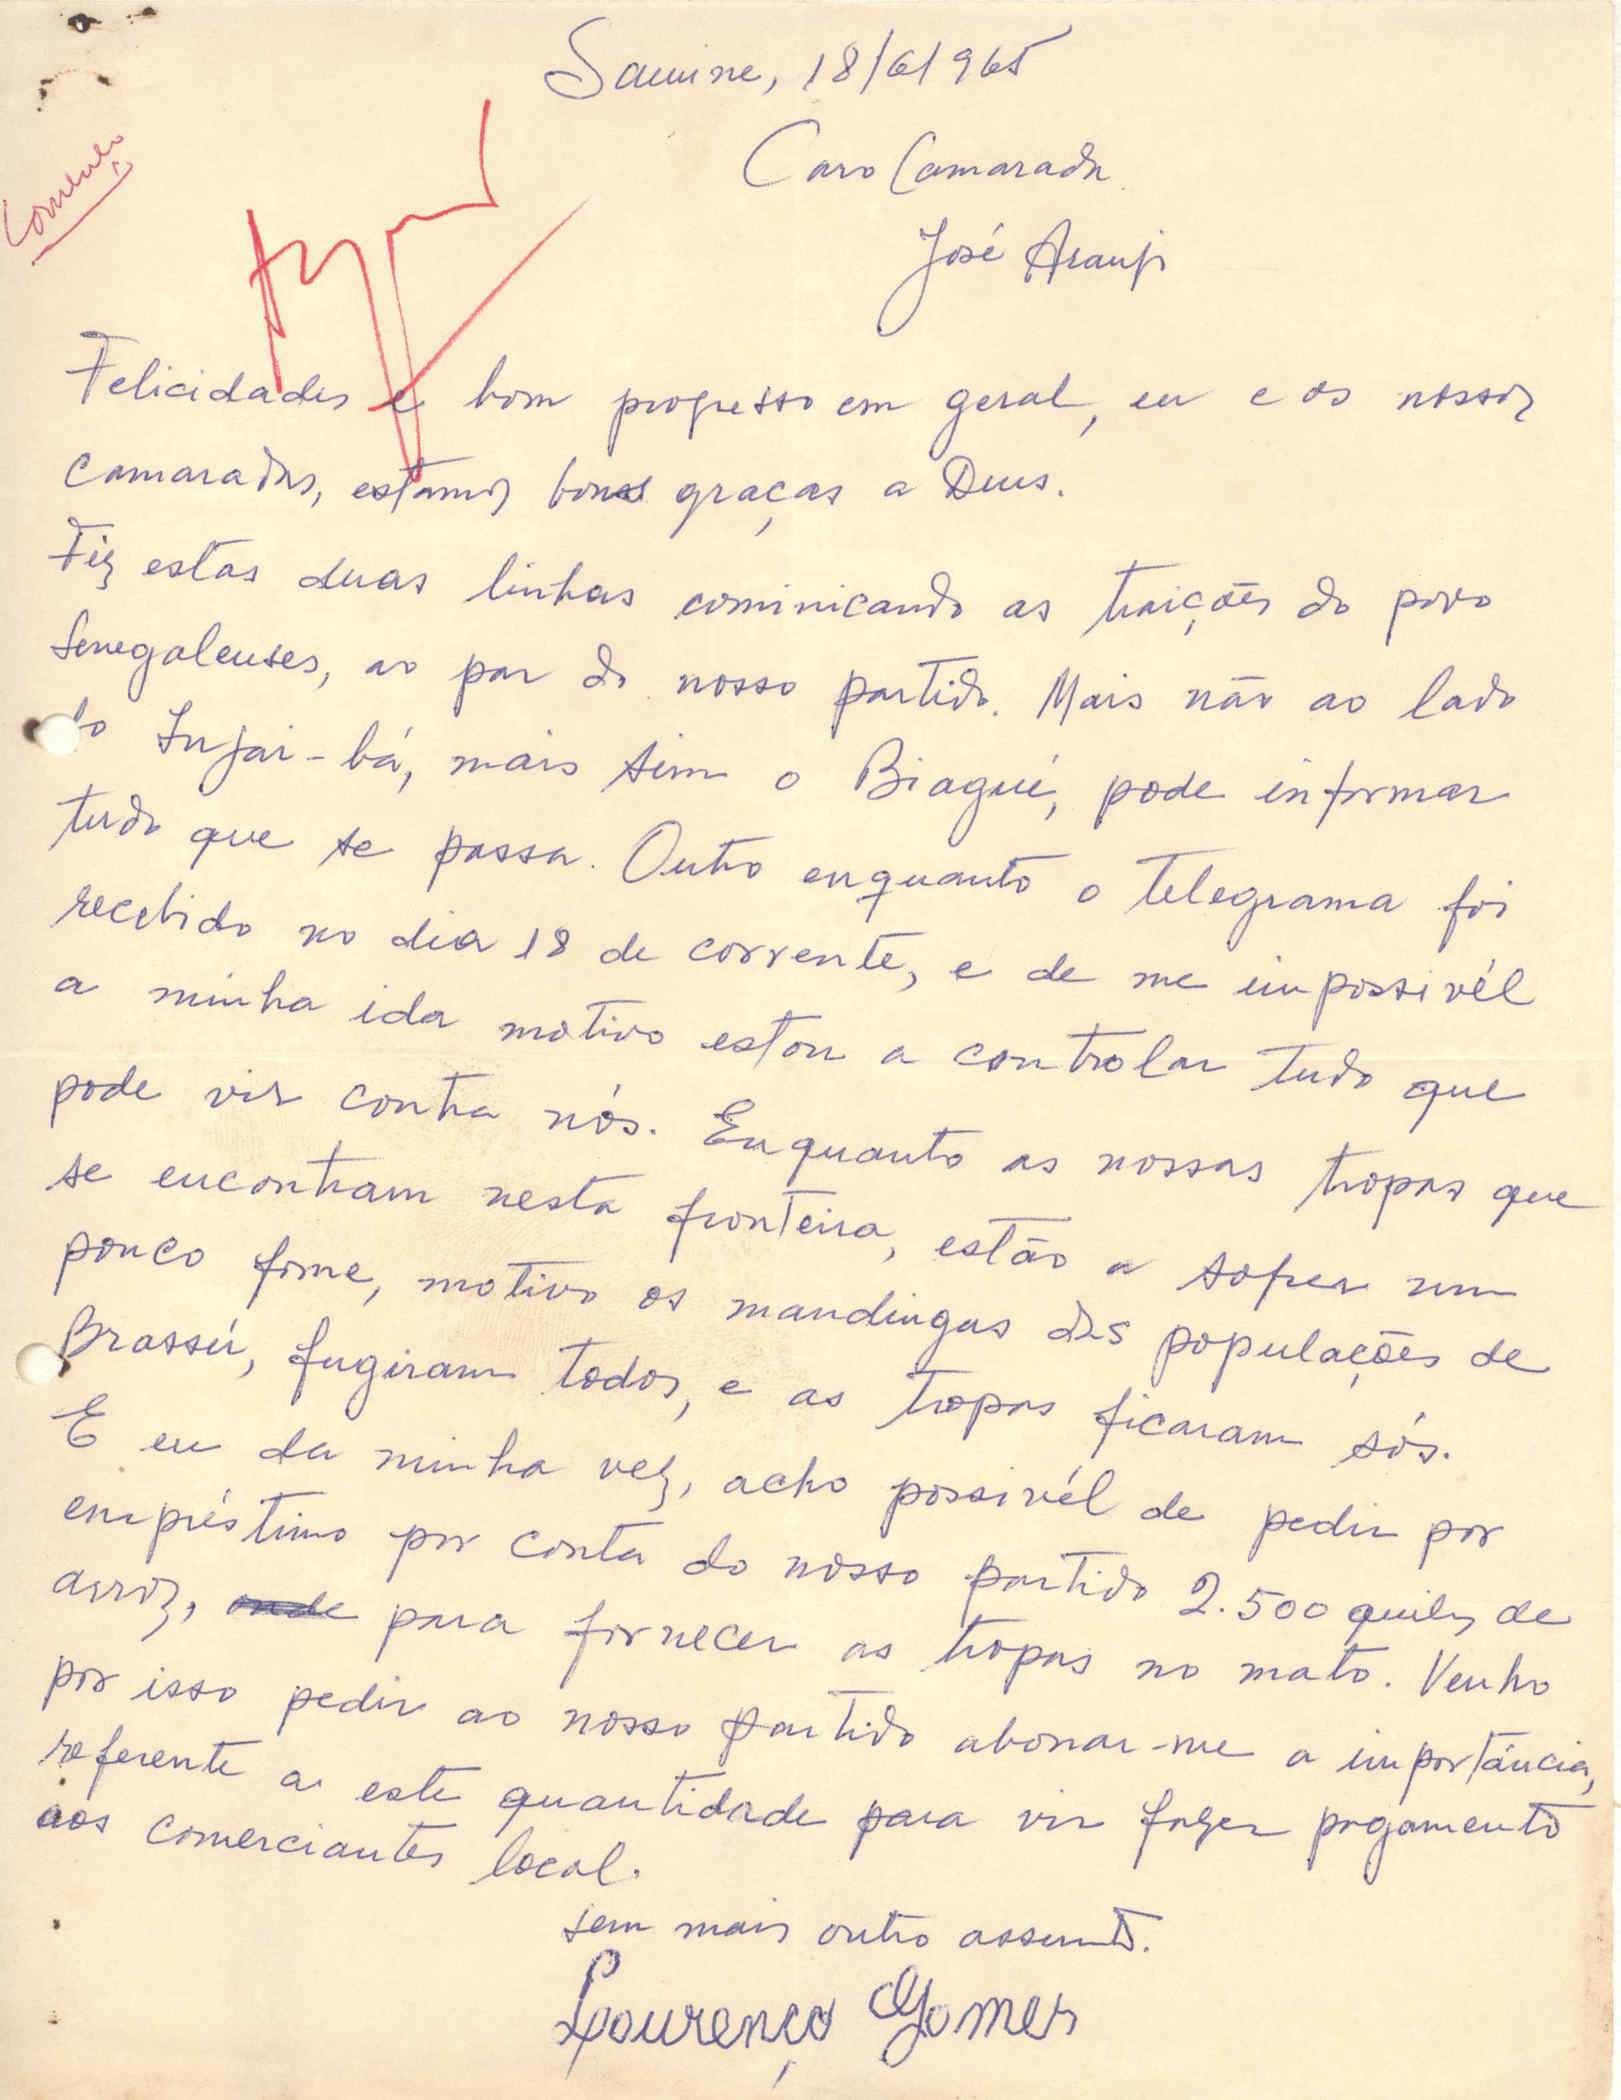 Samine, 18/6/965
Caro Camarada
José Araujo
Felicidades e bom progresso em geral, eu e os nossos
camaradas, estamos bons graças a Deus.
Fiz estas duas linhas cominicando as traições do povo
Senegalenses, ao par do nosso partido. Mais não ao lado
do Injai-bá, mais sim o Biagué, pode informar
tudo que se passa. Outro enquanto o telegrama foi
recebido no dia 18 de corrente, e de me impossivél
a minha ida motivo estou a controlar tudo que
pode vir contra nós. Enquanto as nossas tropas que
se encontram nesta fronteira, estão a sofrer um
pouco fome, motivo os mandingas das populações de
Brassú, fugiram todos, e as tropas ficaram sós.
E eu da minha vez, acho possivél de pedir por
empréstimo por conta do nosso partido 2.500 quilos de
arroz, para fornecer as tropas no mato. Venho
por isso pedir ao nosso partido abonar-me a importância,
referente a este quantidade para vir fazer pagamento
aos comerciantes local.
sem mais outro assunto.
Lourenço Gomes